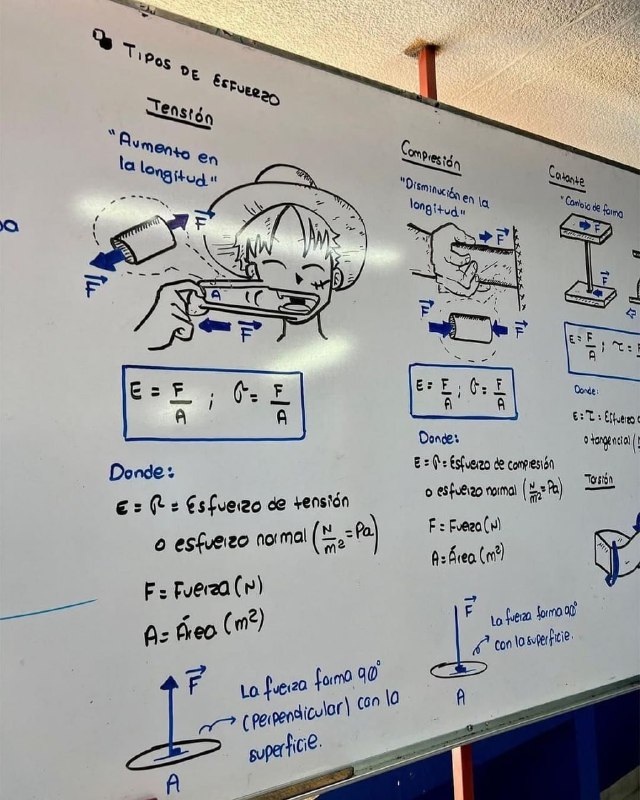 TIPOS DE ESFUERZO
Tensión
"Aumento en
la longitud"
F
F
A
F
E = F/A ; σ = F/A
Donde:
E = σ = Esfuerzo de tensión
o esfuerzo normal (N/m² = Pa)
F = Fuerza (N)
A = Área (m²)
F
A
La fuerza forma 90°
(perpendicular) con la
superficie.
Compresión
"Disminución en la
longitud"
F
F
F
E = F/A ; σ = F/A
Donde:
E = σ = Esfuerzo de compresión
o esfuerzo normal (N/m² = Pa)
F = Fueza (N)
A = Área (m²)
F
A
La fuerza forma 90°
con la superficie.
Cortante
"Cambio de forma
F
F
E = F/A ; τ =
Donde:
E = τ = Esfuerzo
o tangencial (
Torsión